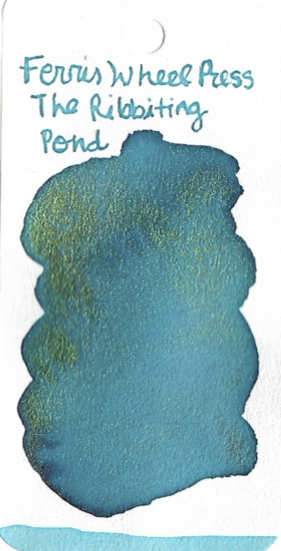 Ferris Wheel Press
The Ribbiting
Pond